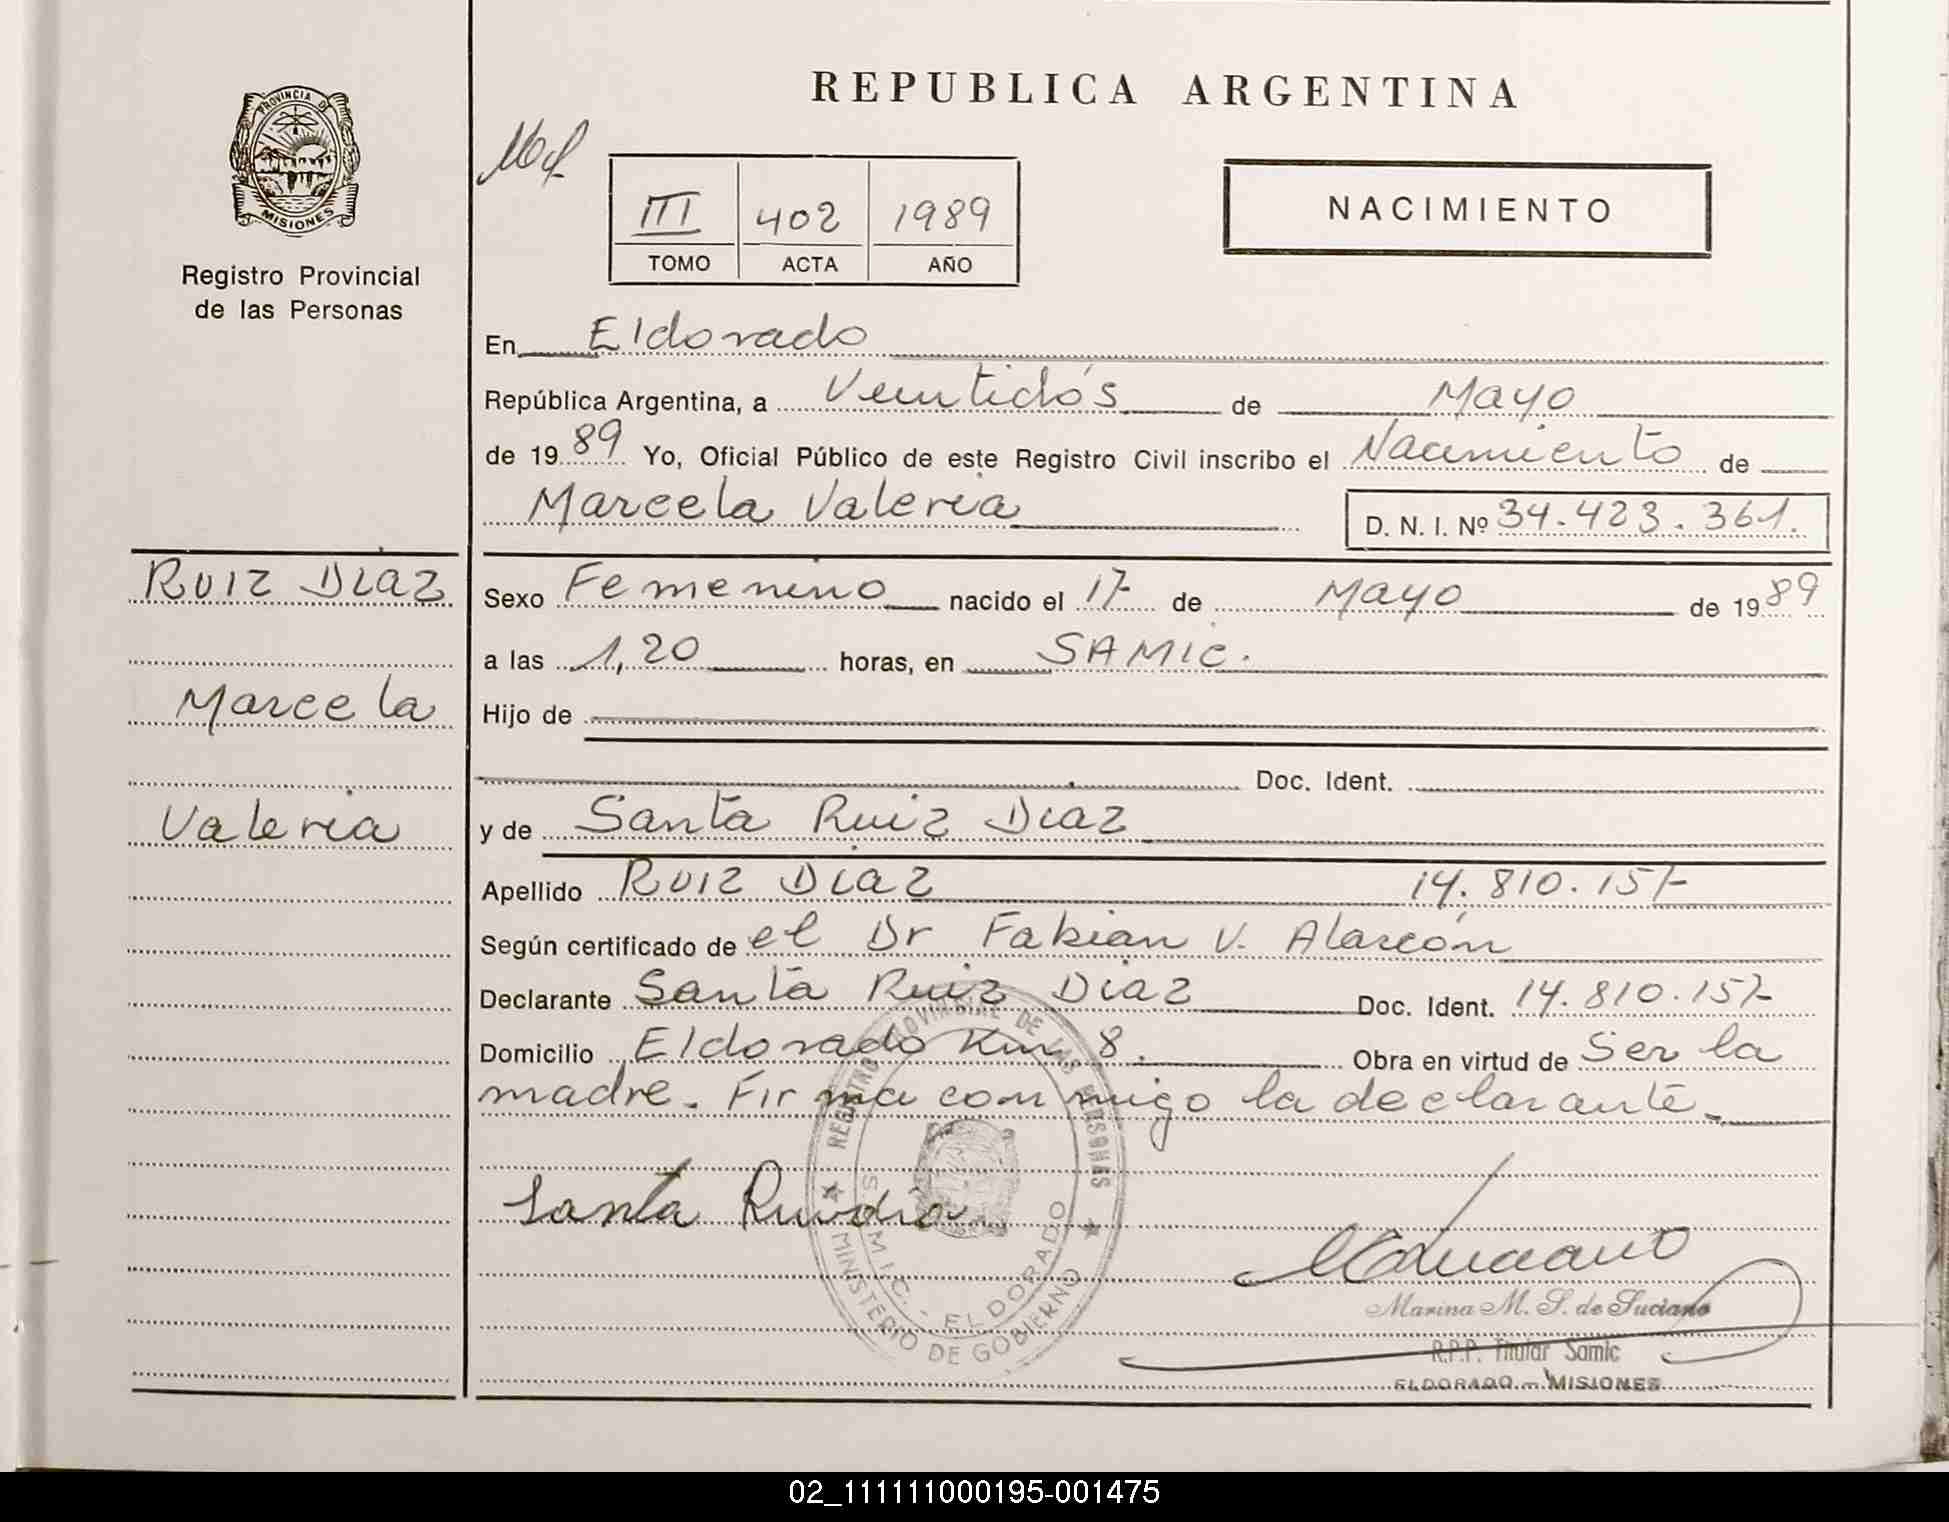 REPUBLICA ARGENTINA
PROVINCIA DE
MISIONES
Registro Provincial
de las Personas
III 402 1989
TOMO ACTA AÑO
NACIMIENTO
En Eldorado
República Argentina, a Veintidós de Mayo
de 1989 Yo, Oficial Público de este Registro Civil inscribo el Nacimiento de
Marcela Valeria D. N. I. Nº 34.423.361.
RUIZ DIAZ
Marcela
Valeria
Sexo Femenino nacido el 17 de Mayo de 1989
a las 1,20 horas, en SAMIC.
Hijo de
Doc. Ident.
y de Santa Ruiz Diaz
Apellido RUIZ DIAZ 14.810.157
Según certificado de el Dr Fabian V. Alarcón
Declarante Santa Ruiz Diaz Doc. Ident. 14.810.157
Domicilio Eldorado Km 8. Obra en virtud de Ser la
madre. Firma conmigo la declarante.
Santa
REGISTRO PROVINCIAL DE LAS PERSONAS
MINISTERIO DE GOBIERNO
S.M.I.C. - ELDORADO
Marina M. S. de Luciano
R.P.P. Titular Samic
ELDORADO - MISIONES
02_111111000195-001475